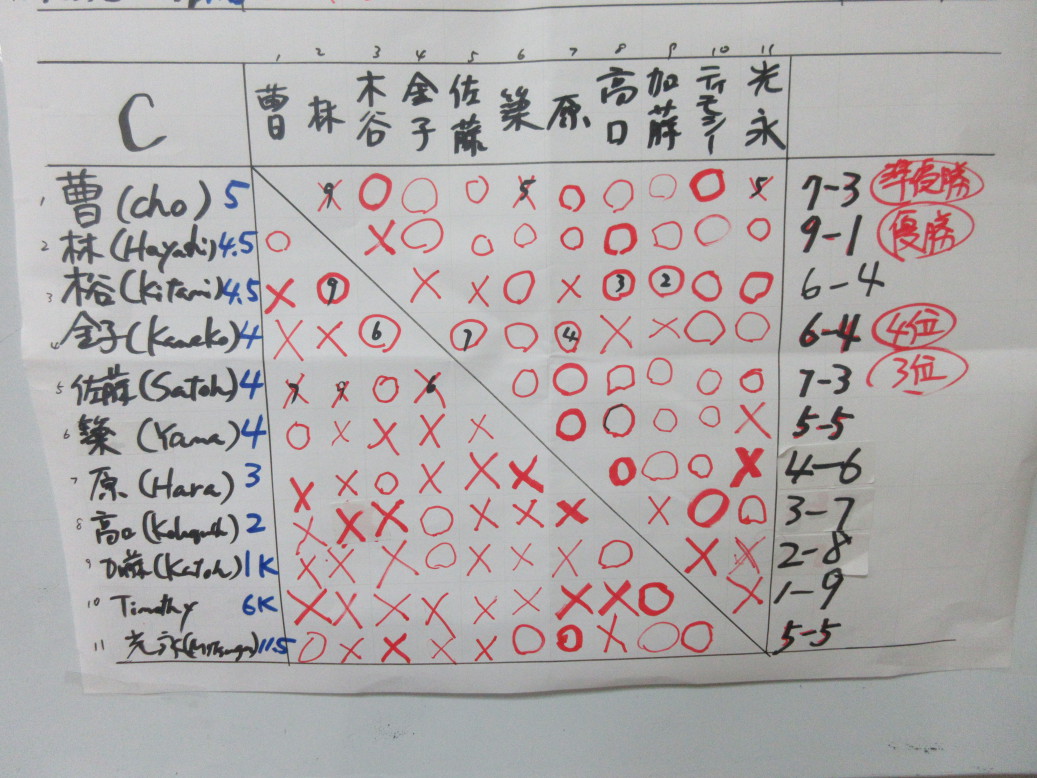 1 2 3 4 5 6 7 8 9 10 11
C 曹 林 木谷 金子 佐藤 築 原 高口 加藤 ティモシー 光永
1 曹(cho) 5 × 9 ○ ○ ○ × 5 ○ ○ ○ ○ × 5 7-3 準優勝
2 林(Hayashi) 4.5 ○ × ○ ○ ○ ○ ○ ○ ○ ○ 9-1 優勝
3 木谷(Kitani) 4.5 × ○ 9 × × ○ × ○ 3 ○ 2 ○ ○ 6-4
4 金子(Kaneko) 4 × × ○ 6 ○ 7 ○ ○ 4 × × ○ ○ 6-4 4位
5 佐藤(Satoh) 4 × 7 × 9 ○ × 6 ○ ○ ○ ○ ○ ○ 7-3 3位
6 築(Yana) 4 ○ × × × × ○ ○ ○ ○ × 5-5
7 原(Hara) 3 × × ○ × × × ○ ○ ○ × 4-6
8 高口 2 × × × ○ × × × × ○ ○ 3-7
9 加藤(Katoh) 1K × × × ○ × × × ○ × × 2-8
10 Timothy 6K × × × × × × × × ○ × 1-9
11 光永 11.5 ○ × × × × ○ ○ × ○ ○ 5-5